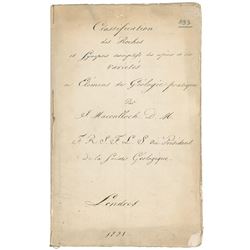 133
Classification
des Roches
et Synopsis complette des espèces et des
Varietes
ou Elémens de Géologie pratique
Par
J. Macculloch D. M.
F. R. S. F. L. S. Vice President
de la Société Géologique.
Londres
1821